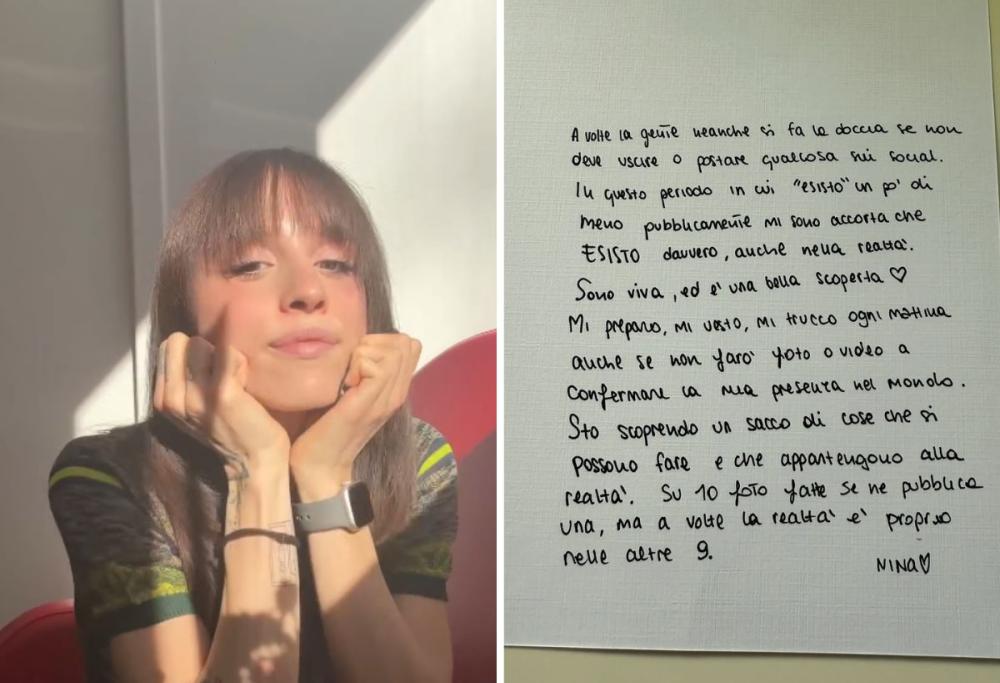 A volte la gente neanche si fa la doccia se non
deve uscire o postare qualcosa sui social.
In questo periodo in cui "esisto" un po' di
meno pubblicamente mi sono accorta che
ESISTO davvero, anche nella realtà.
Sono viva, ed è una bella scoperta ♡
Mi preparo, mi vesto, mi trucco ogni mattina
anche se non farò foto o video a
confermare la mia presenza nel mondo.
Sto scoprendo un sacco di cose che si
possono fare e che appartengono alla
realtà. Su 10 foto fatte se ne pubblica
una, ma a volte la realtà è proprio
nelle altre 9.
NINA♡